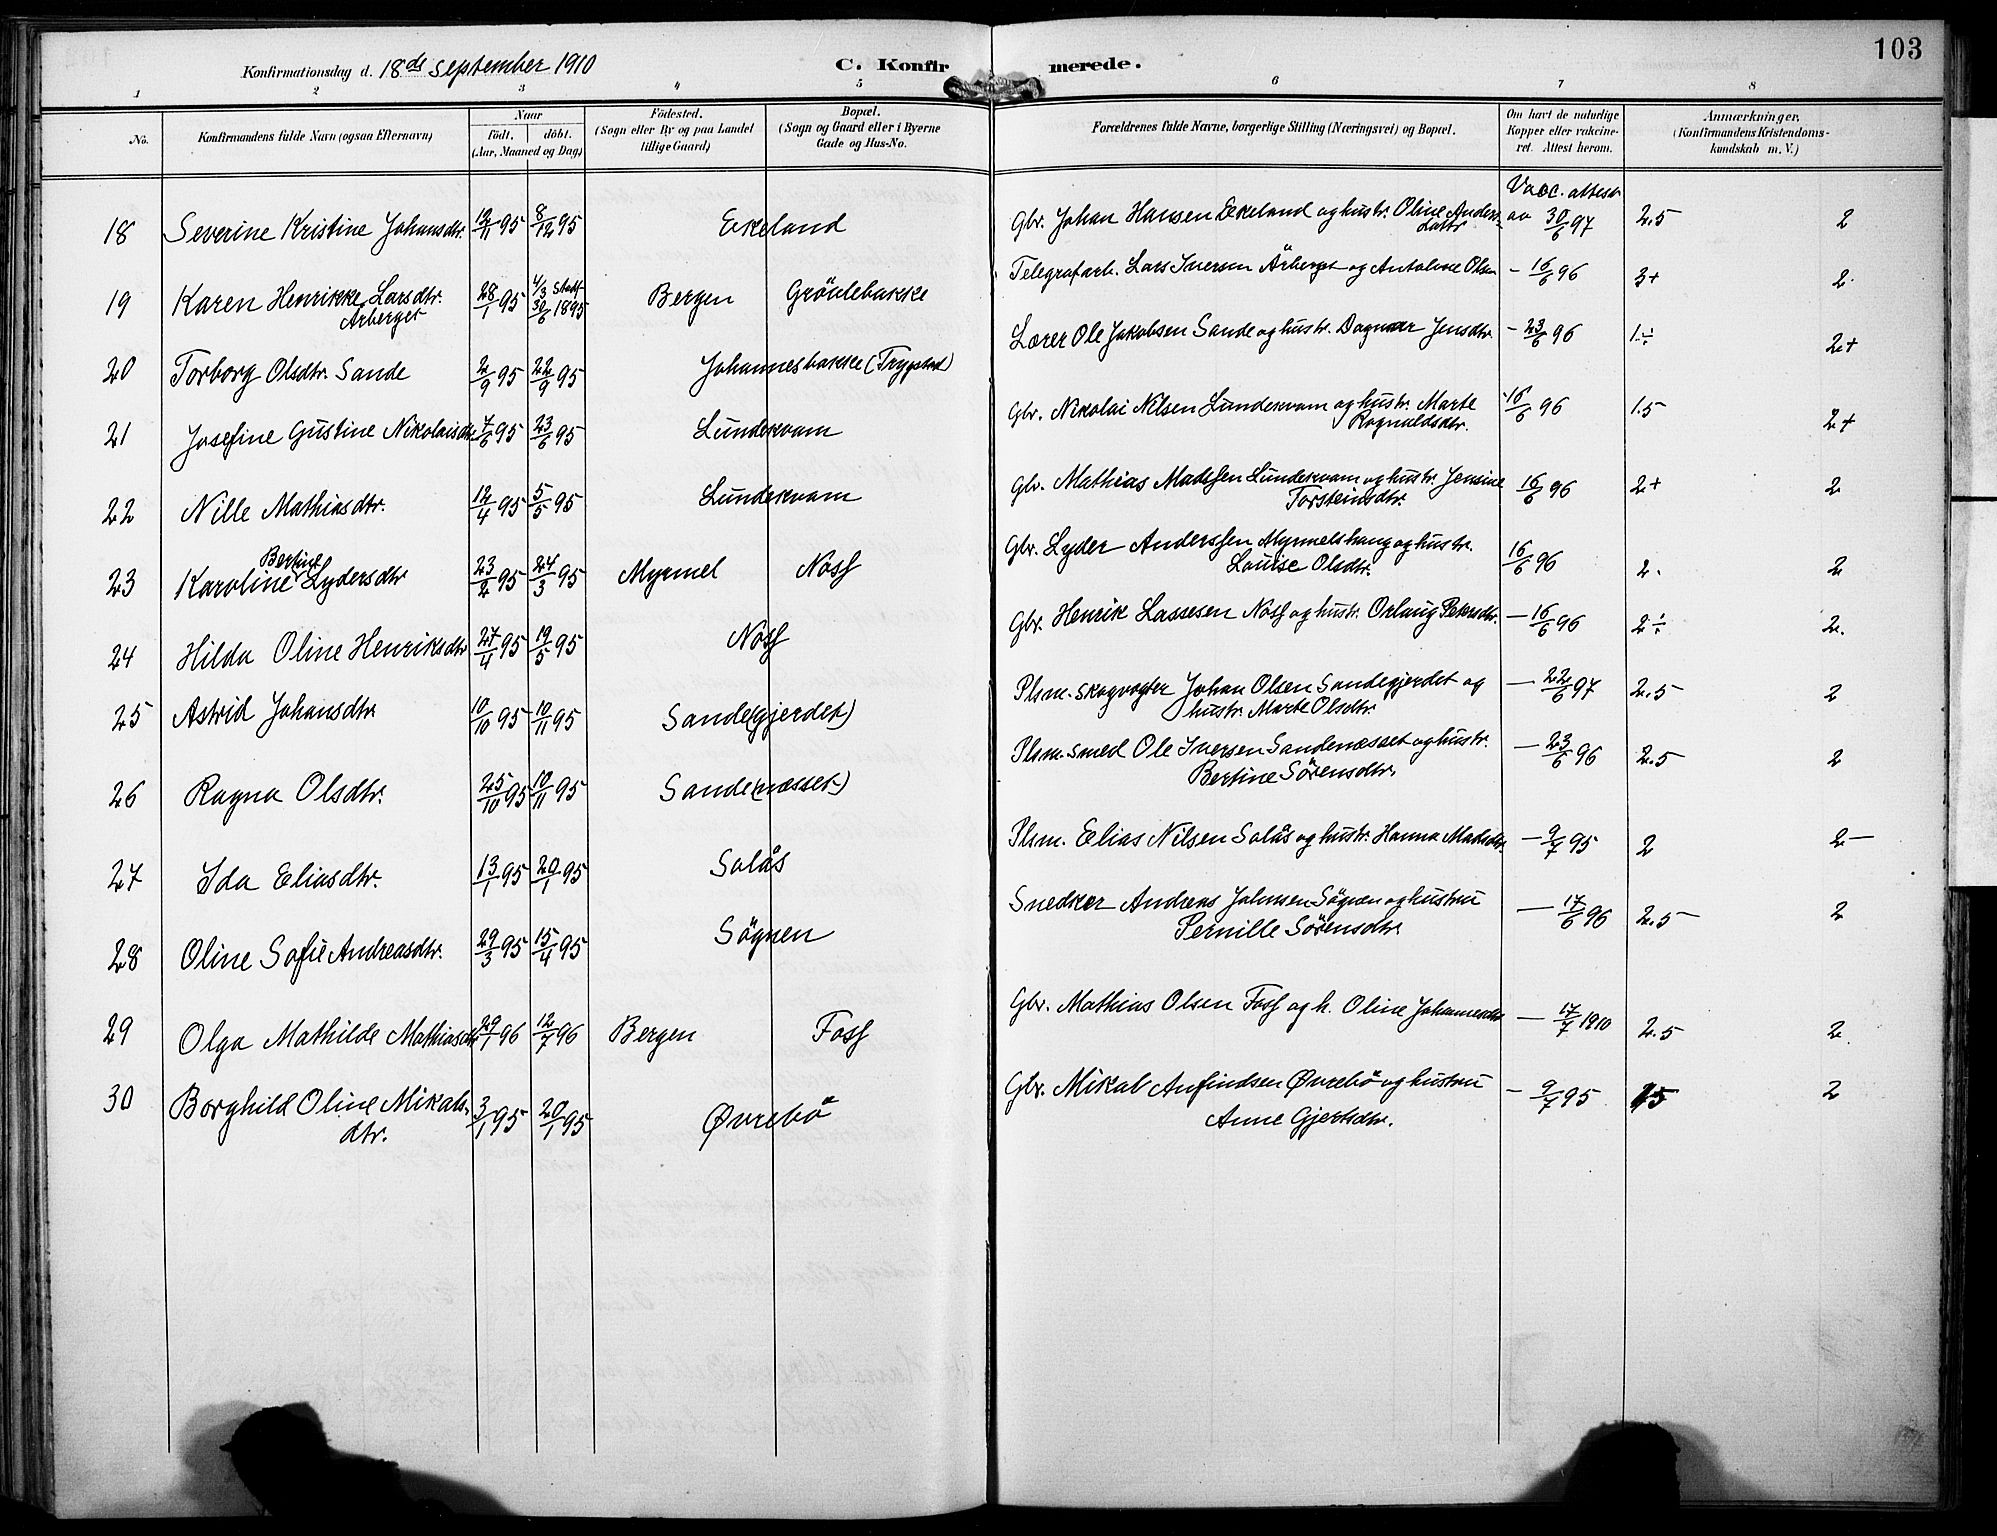 103
Konfirmationsdag d. 18de september 1910 C. Konfirmerede.
1 2 3 4 5 6 7 8
No. Konfirmandens fulde Navn (ogsaa Efternavn) Naar födt. döbt. (Aar, Maaned og Dag) Födested. (Sogn eller By og paa Landet tillige Gaard) Bopæl. (Sogn og Gaard eller i Byerne Gade og Hus-No. Forældrenes fulde Navne, borgerlige Stilling (Næringsvei) og Bopæl. Om havt de naturlige Kopper eller vakcineret. Attest herom. Anmærkninger. (Konfirmandens Kristendomskundskab m. V.)
18 Severine Kristine Johansdtr. 12/11 95 8/12 95 Ekeland Gbr. Johan Hansen Ekeland og hustr. Oline Anders- Vacc. attest av 30/6 97 2.5 2
19 Karen Henrikke Larsdtr. Årberget 28/1 95 4/3 30/6 1895 Bergen Grönebakke Telegrafarb. Lars Iversen Årberget og Antoline Olsen - 16/6 96 3+ 2
20 Torborg Olsdtr. Sande 2/9 95 22/9 95 Johannesbakke Lærer Ole Jakobsen Sande og hustr. Dagmar Jensdtr. - 23/6 96 1÷ 2+
21 Josefine Gustine Nikolaisdtr. 7/6 95 23/6 95 Lundekvam Gbr. Nikolai Nilsen Lundekvam og hustr. Marte Ragnaldsdtr. 16/6 96 1.5 2+
22 Nille Mathiasdtr. 12/4 95 5/5 95 Lundekvam Gbr. Mathias Madssen Lundekvam og hustr. Jensine Torsteinsdtr. 16/6 96 2+ 2
23 Karoline Bertine Lydersdtr 23/2 95 24/3 95 Myrmel Noss Gbr. Lyder Anderssen Myrmelshaug og hustr. Louise Olsdtr. 16/6 96 2. 2
24 Hilda Oline Henriksdtr 27/4 95 19/5 95 Noss Gbr. Henrik Lassesen Noss og hustr. Orlaug Petersdtr. - 16/6 96 2÷ 2.
25 Astrid Johansdtr 10/10 95 10/11 95 Sande(gjerdet) Plsm. skogvogter Johan Olsen Sandegjerdet og hustr. Marte Olsdtr. - 22/6 97 2.5 2
26 Ragna Olsdtr. 25/10 95 10/11 95 Sande(næsset) Plsm. smed Ole Iversen Sandenæsset og hustr. Bertine Sörensdtr. - 23/6 96 2.5 2
27 Ida Eliasdtr. 13/1 95 20/1 95 Solås Plsm. Elias Nilsen Solås og hustr. Hanna Madsdtr. - 9/7 95 2 2-
28 Oline Sofie Andreasdtr. 29/3 95 15/4 95 Sögnen Snedker Andreas Johnsen Sögnen og hustru Pernille Sörensdtr. - 17/6 96 2.5 2
29 Olga Mathilde Mathiasdtr 29/1 96 12/7 96 Bergen Foss Gbr. Mathias Olsen Foss og h. Oline Johannesdtr - 17/7 1910 2.5 2
30 Borghild Oline Mikalsdtr. 3/1 95 20/1 95 Øvrebö Gbr. Mikal Anfindsen Øvrebö og hustru Anne Gjertsdtr. - 9/7 95 15 2